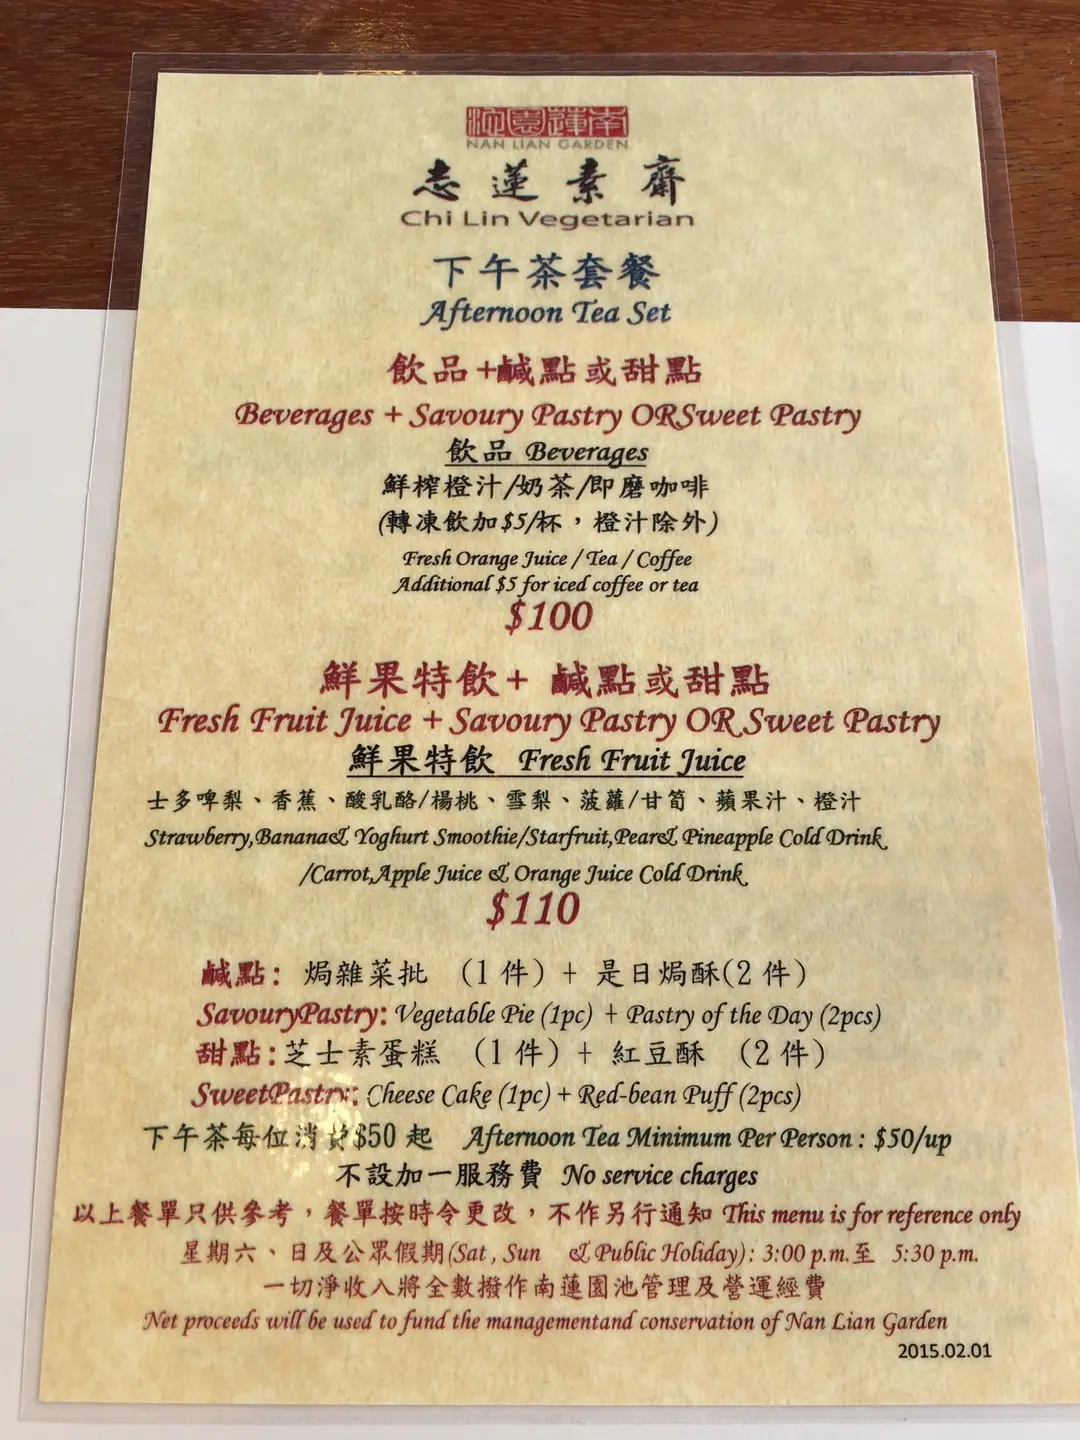 南蓮園池
NAN LIAN GARDEN
志蓮素齋
Chi Lin Vegetarian
下午茶套餐
Afternoon Tea Set
飲品+鹹點或甜點
Beverages + Savoury Pastry ORSweet Pastry
飲品 Beverages
鮮榨橙汁/奶茶/即磨咖啡
(轉凍飲加$5/杯，橙汁除外)
Fresh Orange Juice / Tea / Coffee
Additional $5 for iced coffee or tea
$100
鮮果特飲+ 鹹點或甜點
Fresh Fruit Juice + Savoury Pastry OR Sweet Pastry
鮮果特飲 Fresh Fruit Juice
士多啤梨、香蕉、酸乳酪/楊桃、雪梨、菠蘿/甘筍、蘋果汁、橙汁
Strawberry,Banana& Yoghurt Smoothie/Starfruit,Pear& Pineapple Cold Drink
/Carrot,Apple Juice & Orange Juice Cold Drink
$110
鹹點: 焗雜菜批 (1 件) + 是日焗酥(2 件)
SavouryPastry: Vegetable Pie (1pc) + Pastry of the Day (2pcs)
甜點:芝士素蛋糕 (1 件) + 紅豆酥 (2 件)
SweetPastry: Cheese Cake (1pc) + Red-bean Puff (2pcs)
下午茶每位消費$50 起 Afternoon Tea Minimum Per Person : $50/up
不設加一服務費 No service charges
以上餐單只供參考，餐單按時令更改，不作另行通知 This menu is for reference only
星期六、日及公眾假期(Sat , Sun & Public Holiday) : 3:00 p.m.至 5:30 p.m.
一切淨收入將全數撥作南蓮園池管理及營運經費
Net proceeds will be used to fund the managementand conservation of Nan Lian Garden
2015.02.01